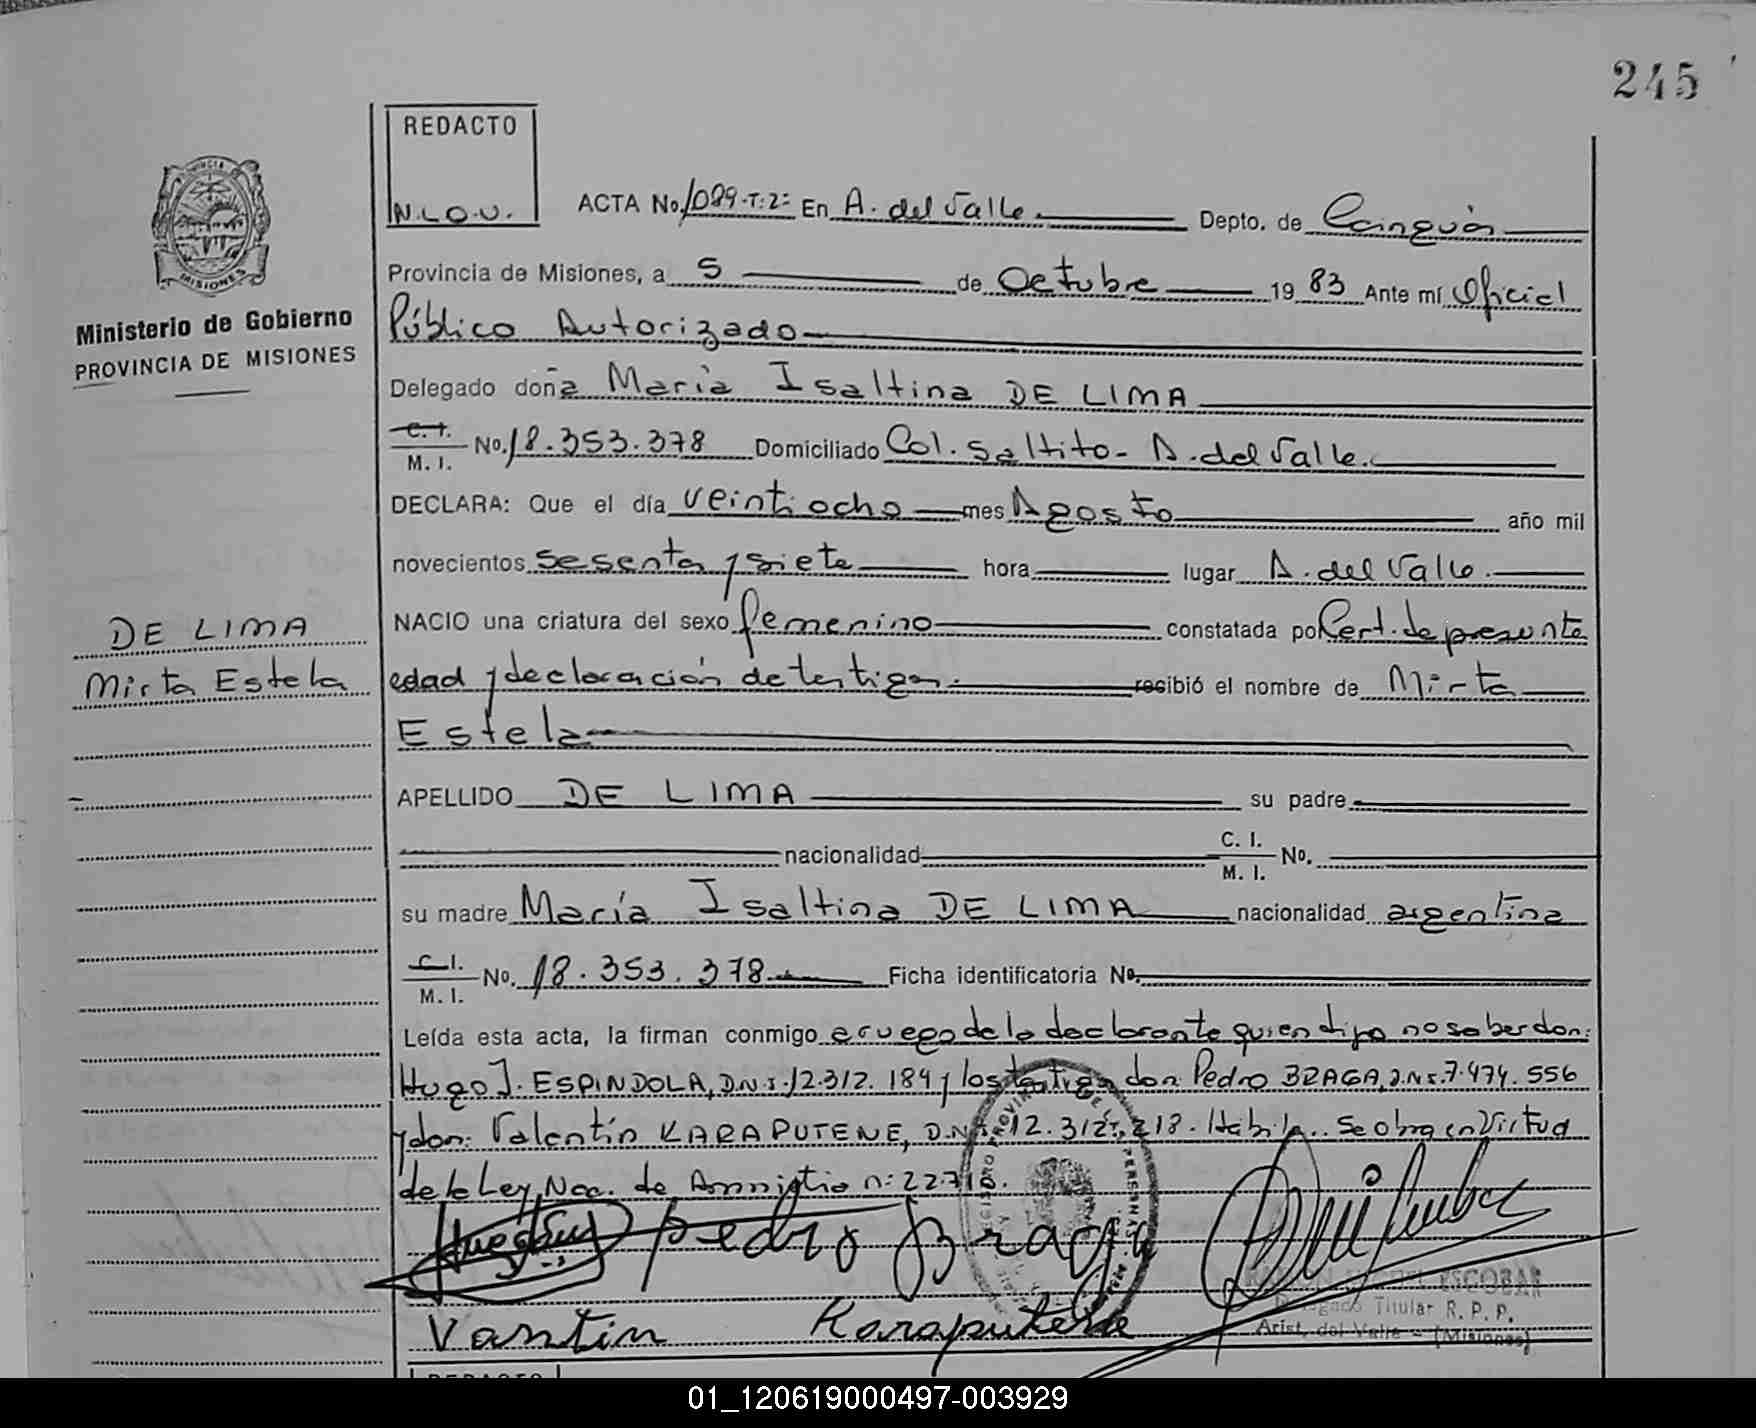 245
REDACTO
N.L.O.U.
ACTA No. 1089-T:2: En A. del Valle Depto. de Cainguás
Provincia de Misiones, a 5 de Octubre 19 83 Ante mí Oficial
Público Autorizado
Ministerio de Gobierno
PROVINCIA DE MISIONES
Delegado doña María Isaltina DE LIMA
C. I.
M. I. No. 18.353.378 Domiciliado Col. Saltito - A. del Valle.
DECLARA: Que el día veintiocho mes Agosto año mil
novecientos sesenta y siete hora lugar A. del Valle.
NACIO una criatura del sexo femenino Constatada por Cert. de presunta
DE LIMA
Mirta Estela
edad y declaración de testigos. recibió el nombre de Mirta
Estela
APELLIDO DE LIMA su padre
nacionalidad C. I.
M. I. No.
su madre María Isaltina DE LIMA nacionalidad argentina
C. I.
M. I. No. 18.353.378 Ficha identificatoria No.
Leída esta acta, la firman conmigo a ruego de la declarante quien dijo no saber don:
Hugo J. ESPINDOLA, D.N.I. 12.312.184 y los testigos don: Pedro BRAGA, D.N.I. 7.474.556
y don: Valentín KARAPUTENE, D.N.I. 12.312.218. Hábiles. Se obra en Virtud
de la Ley Nac. de Amnistia n:
Pedro Braga
Vantin Karaputene
ESCOBAR
Delegado Titular R. P. P.
Arist. del Valle - (Misiones)
REDACTO
01_120619000497-003929